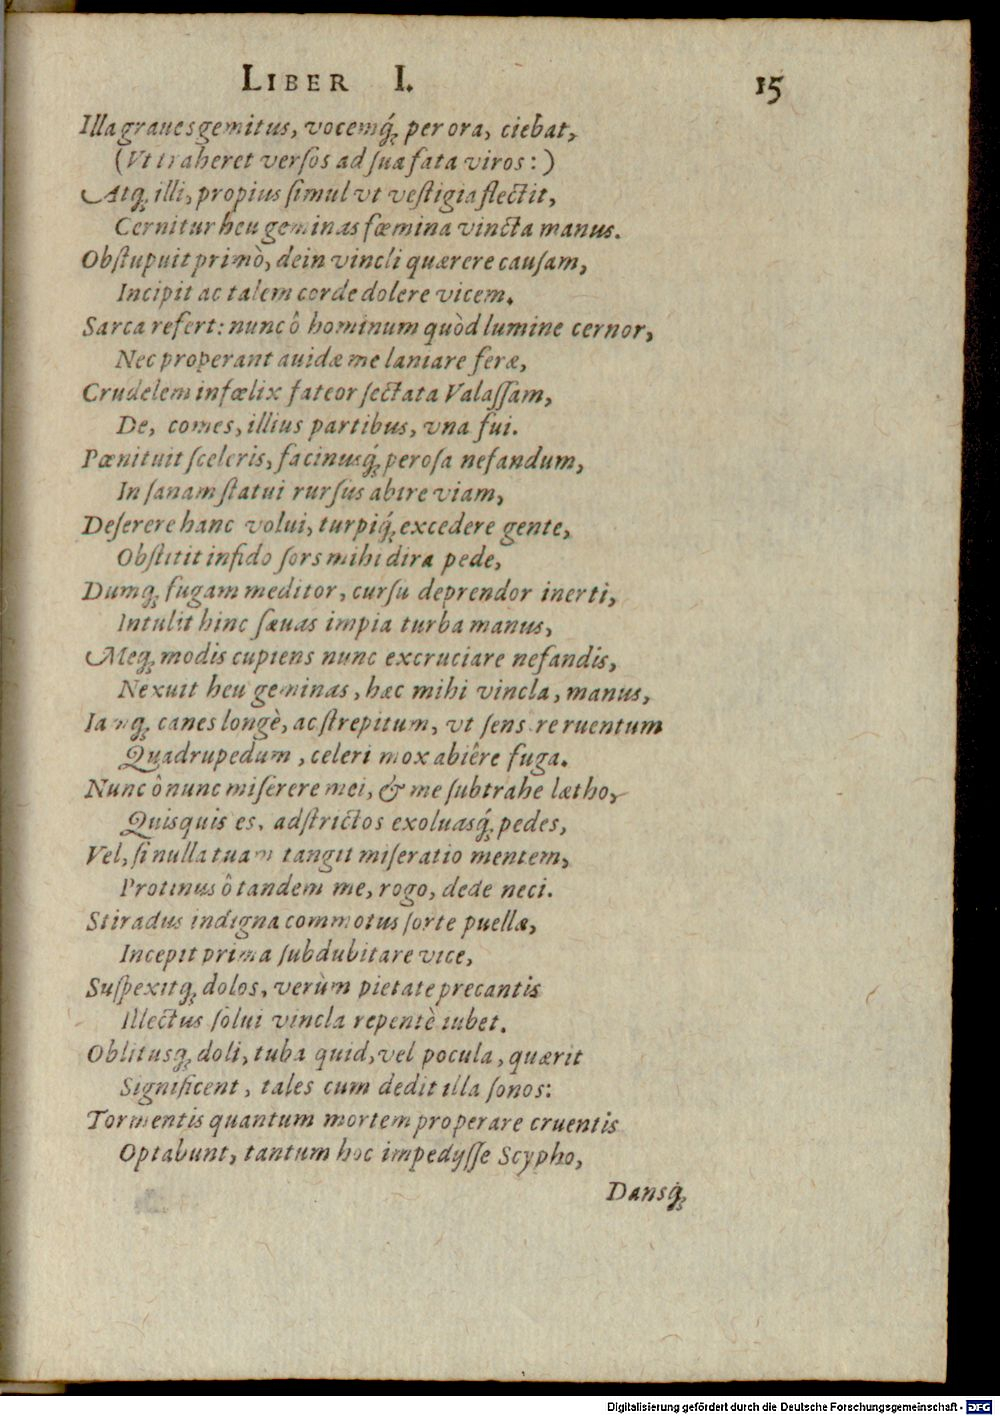 LIBER I. 15
Illa graues gemitus, vocemq́; per ora, ciebat,
(Vt traheret versos ad sua fata viros:)
Atq; illi, propius simul vt vestigia flectit,
Cernitur heu geminas fœmina vincta manus.
Obstupuit primò, dein vincli quærere causam,
Incipit ac talem corde dolere vicem.
Sarca refert: nunc ô hominum quòd lumine cernor,
Nec properant auidæ me laniare feræ,
Crudelem infœlix fateor sectata Valassam,
De, comes, illius partibus, vna fui.
Pœnituit sceleris, facinusq́; perosa nefandum,
In sanam statui rursus abire viam,
Deserere hanc volui, turpiq́; excedere gente,
Obstitit infido sors mihi dira pede,
Dumq; fugam meditor, cursu deprendor inerti,
Intulit hinc sæuas impia turba manus,
Meq; modis cupiens nunc excruciare nefandis,
Nexuit heu geminas, hæc mihi vincla, manus,
Iamq; canes longè, ac strepitum, vt sensere ruentum
Quadrupedum, celeri mox abiêre fuga.
Nunc ô nunc miserere mei, & me subtrahe lætho,
Quisquis es, adstrictos exoluasq́; pedes,
Vel, si nulla tuam tangit miseratio mentem,
Protinus ô tandem me, rogo, dede neci.
Stiradus indigna commotus sorte puellæ,
Incepit prima subdubitare vice,
Suspexitq; dolos, verùm pietate precantis
Illectus solui vincla repentè iubet.
Oblitusq; doli, tuba quid, vel pocula, quærit
Significent, tales cum dedit illa sonos:
Tormentis quantum mortem properare cruentis
Optabunt, tantum hoc impedysse Scypho,
Dansq́;
Digitalisierung gefördert durch die Deutsche Forschungsgemeinschaft - DFG